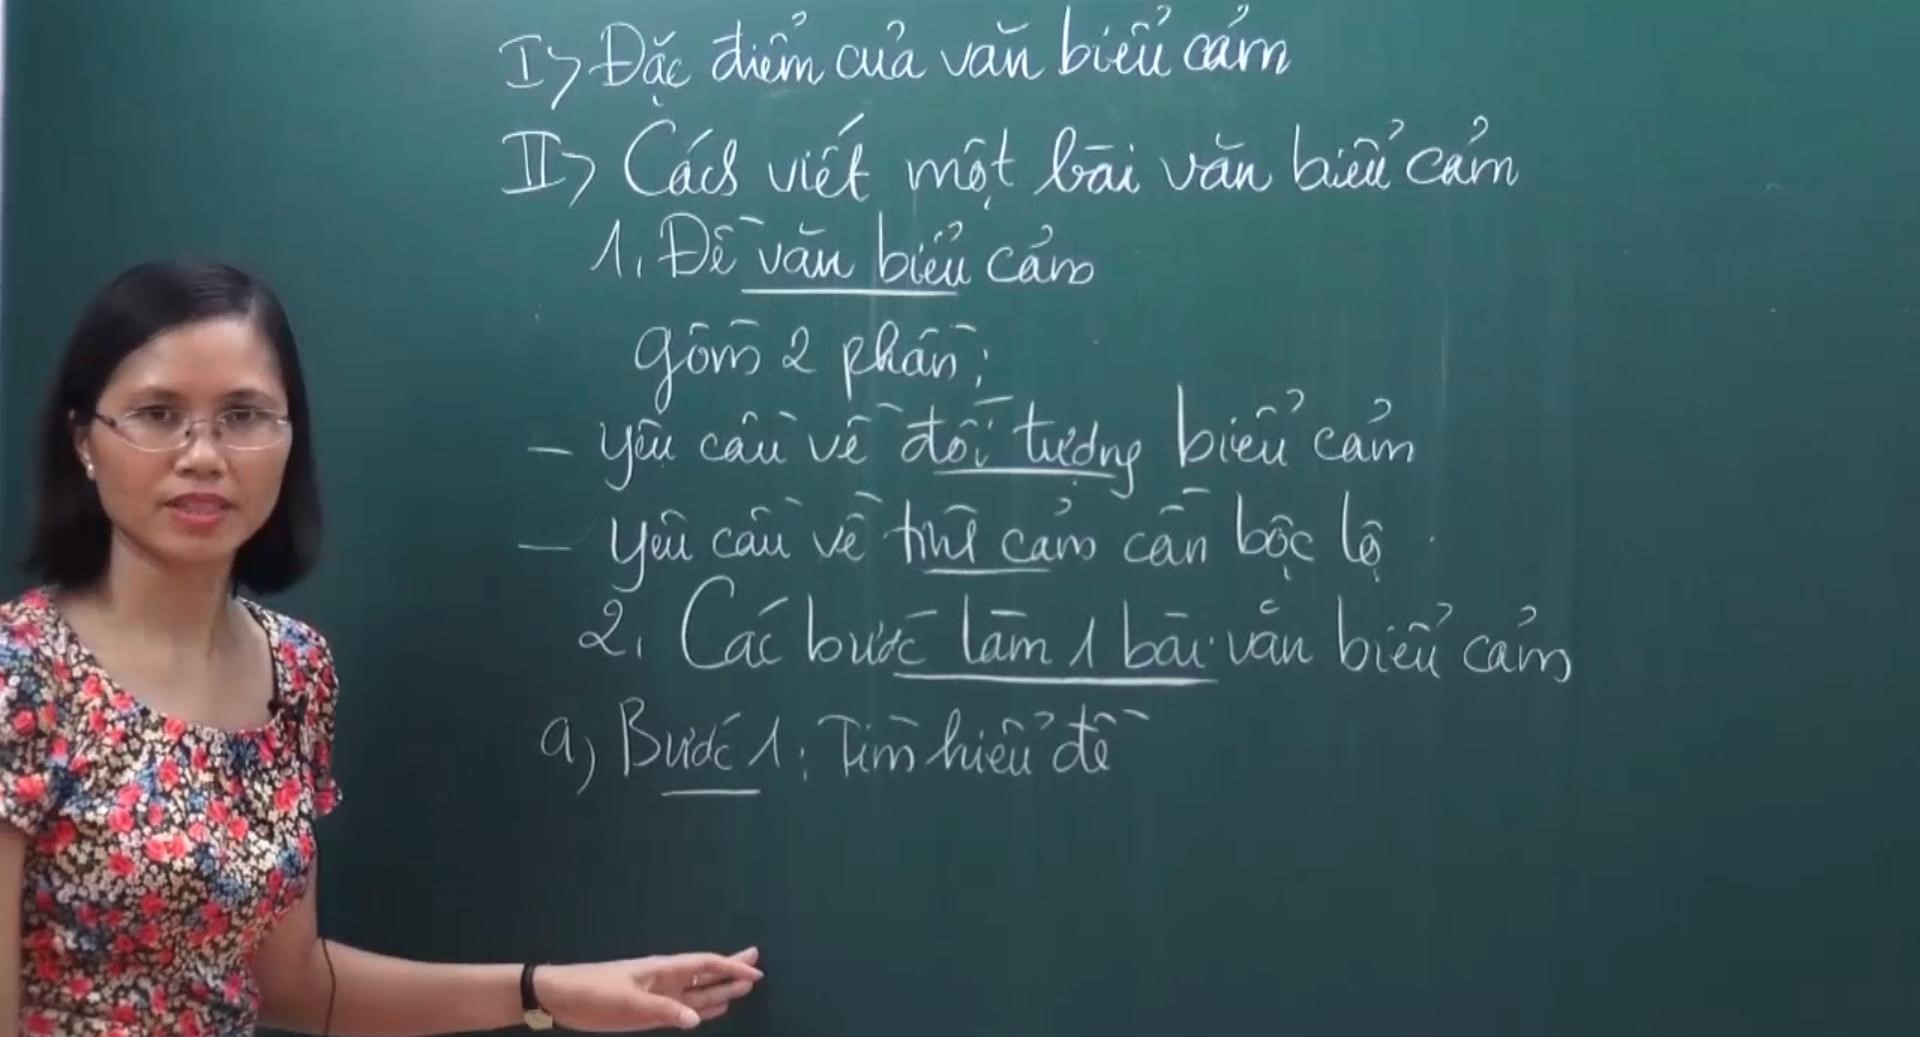 I> Đặc điểm của văn biểu cảm
II> Cách viết một bài văn biểu cảm
1. Đề văn biểu cảm
gồm 2 phần:
- yêu cầu về đối tượng biểu cảm
- yêu cầu về tình cảm cần bộc lộ.
2. Các bước làm 1 bài văn biểu cảm
a) Bước 1: Tìm hiểu đề